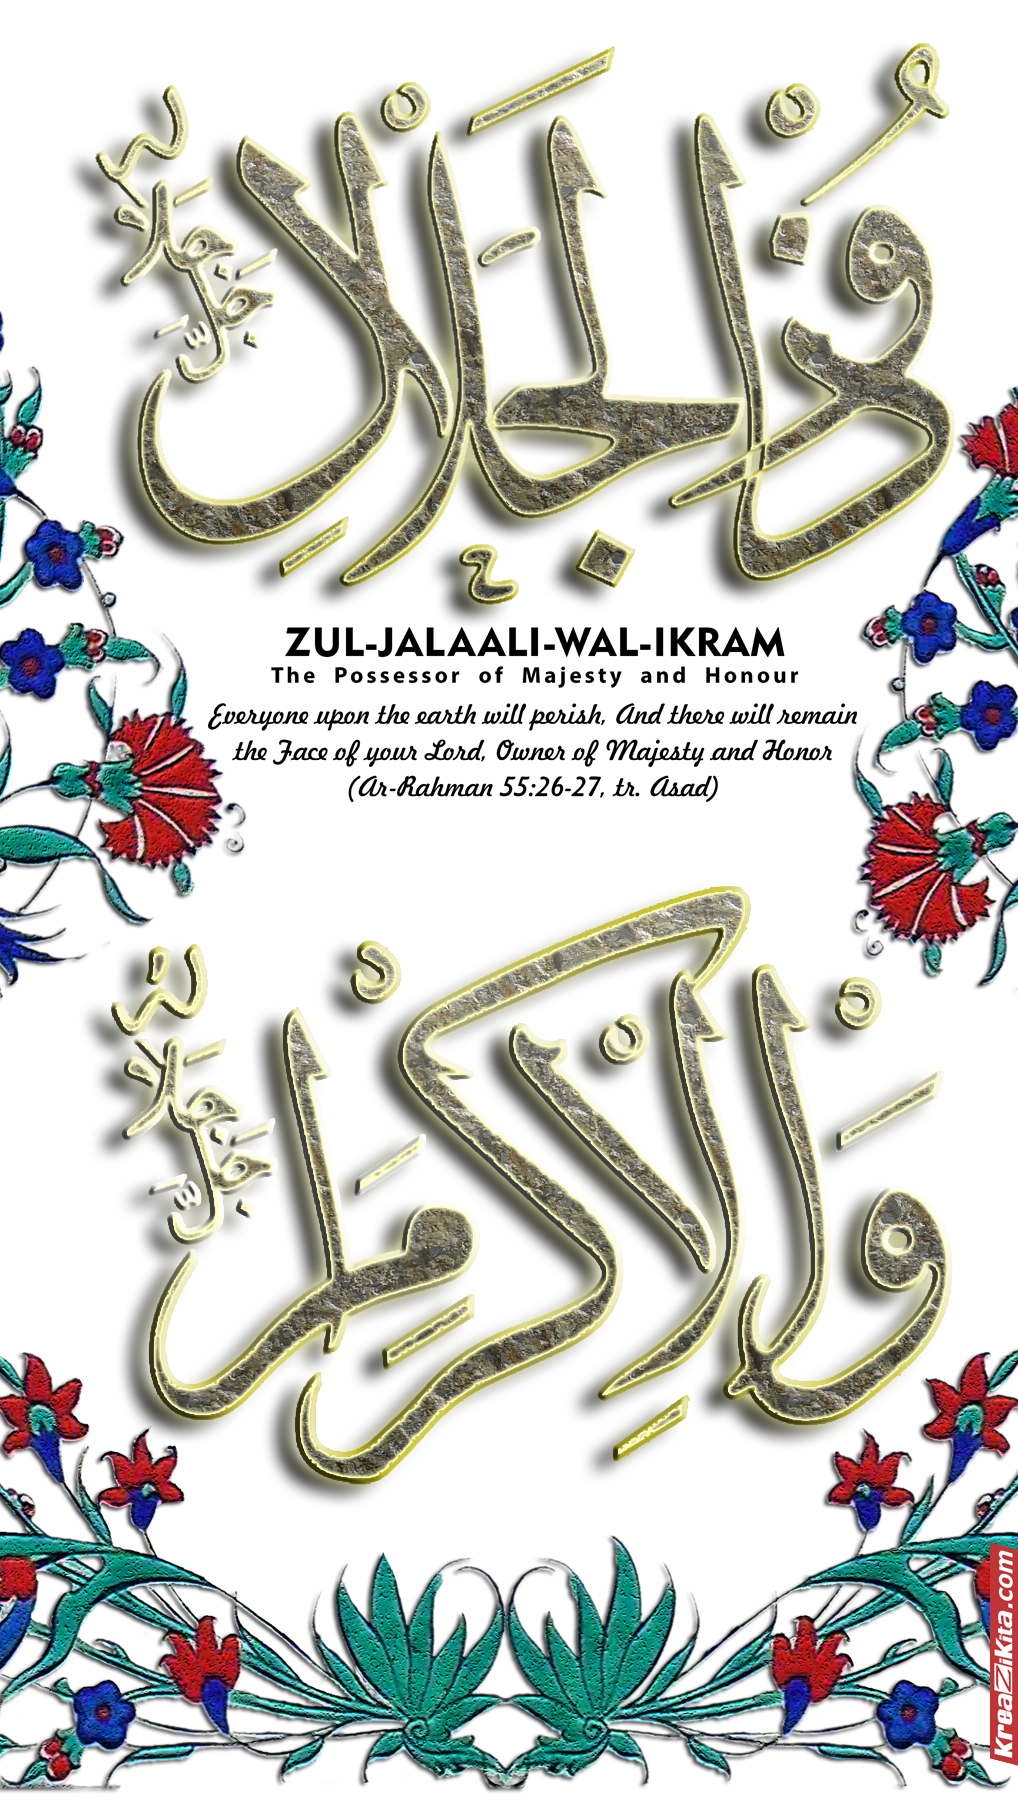 ذُو الْجَلَالِ
جَلَّ جَلَالُهُ
ZUL-JALAALI-WAL-IKRAM
The Possessor of Majesty and Honour
Everyone upon the earth will perish, And there will remain
the Face of your Lord, Owner of Majesty and Honor
(Ar-Rahman 55:26-27, tr. Asad)
وَالْإِكْرَامِ
جَلَّ جَلَالُهُ
KreaZiKita.com